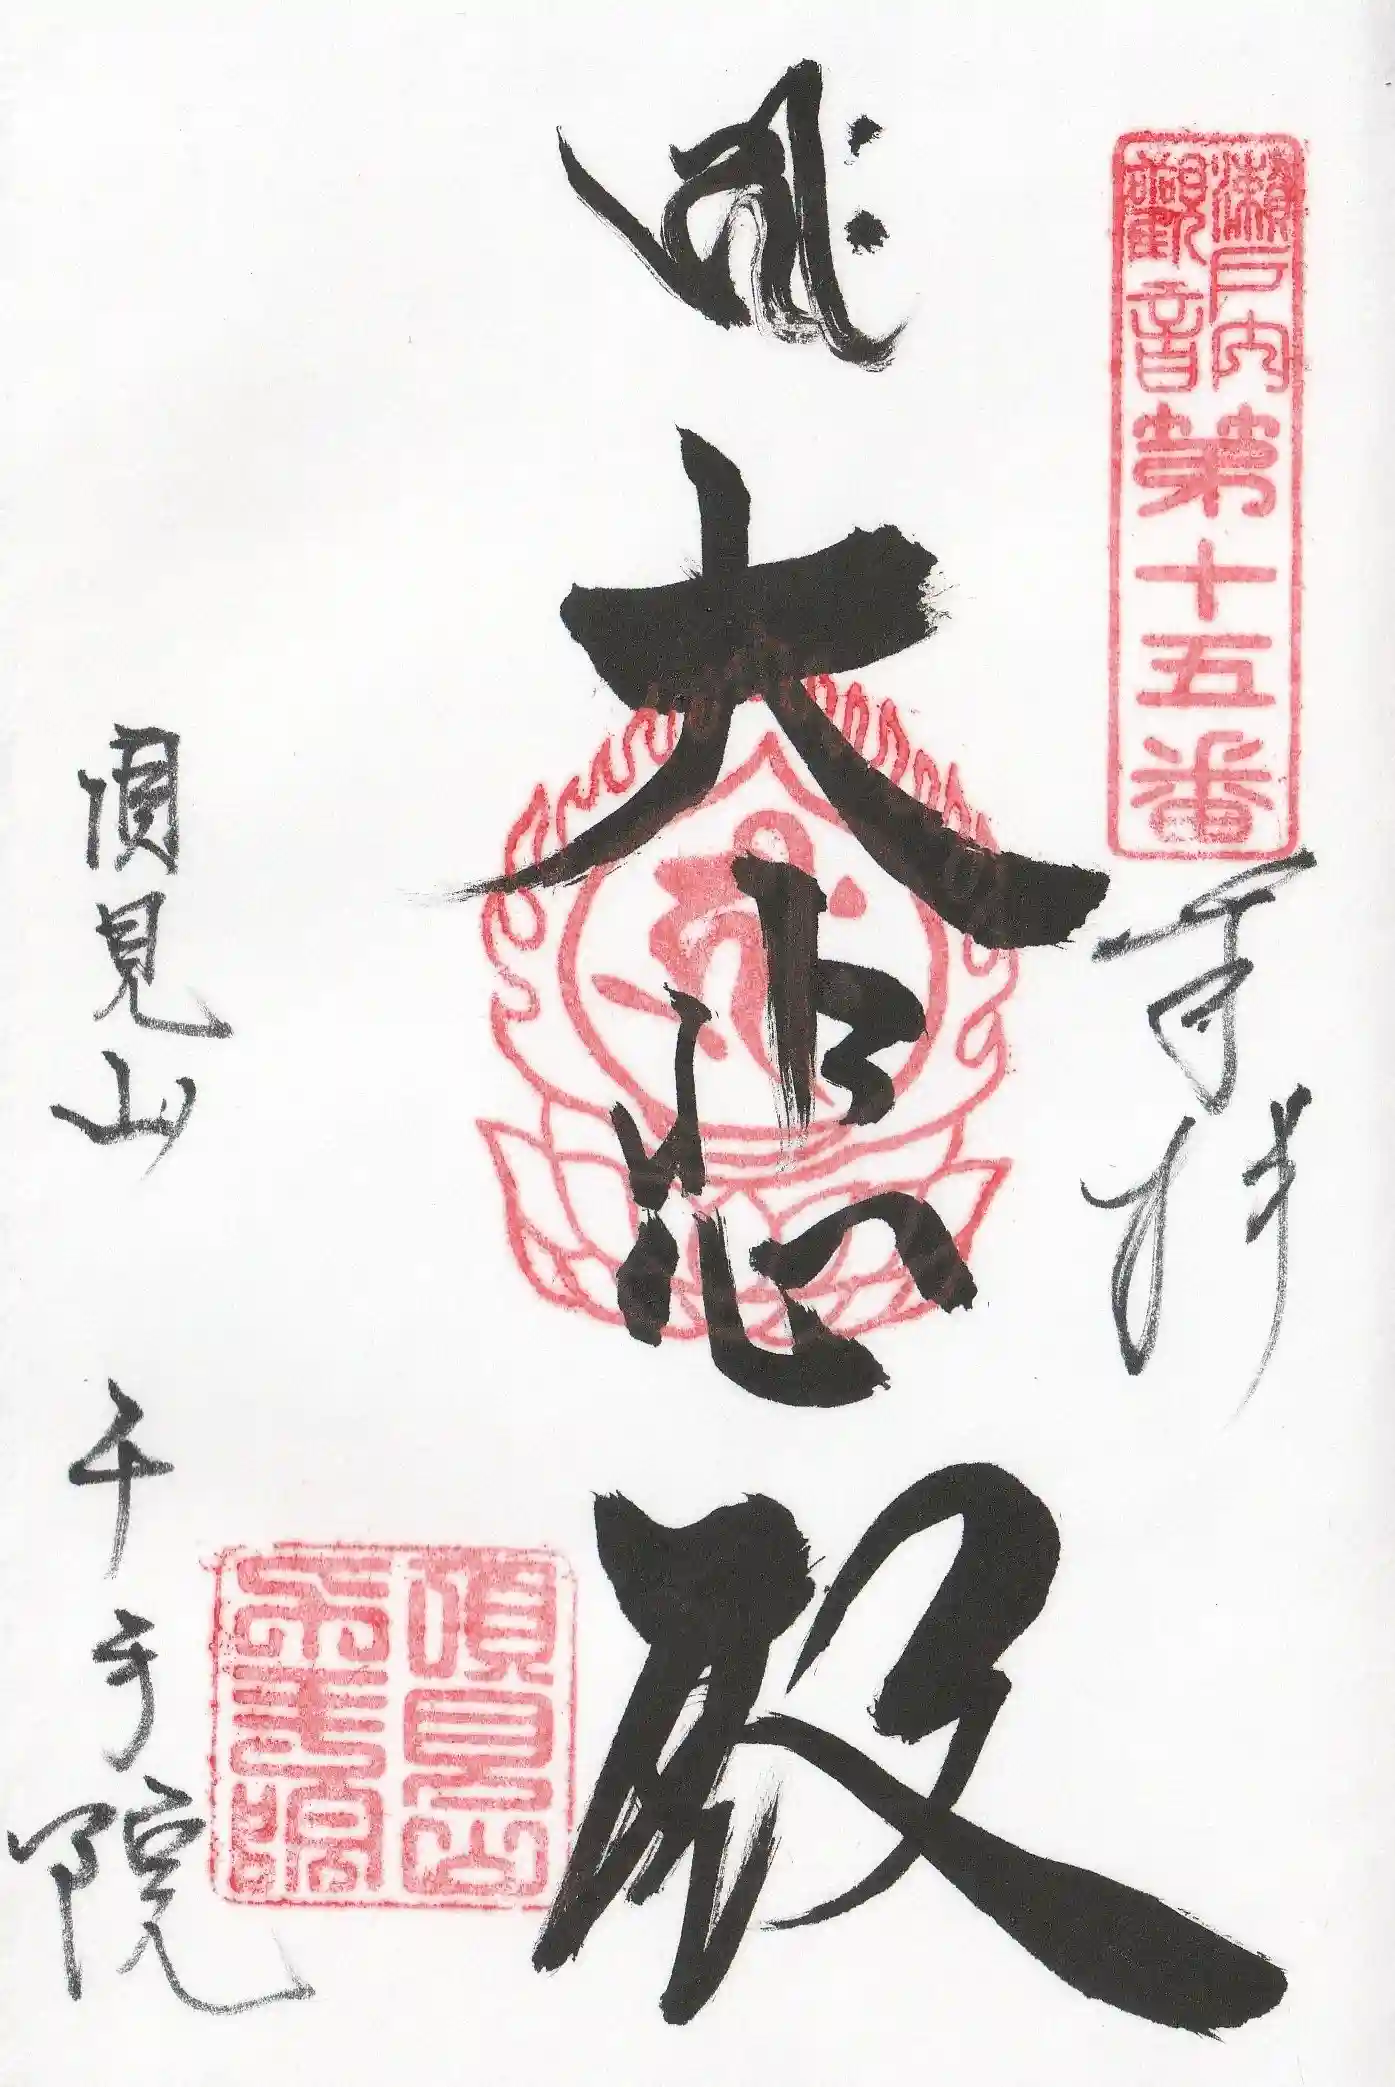 瀬戸内
觀音
第十五番
奉拝
大悲殿
頂見山
千手院
頂見山 千手院